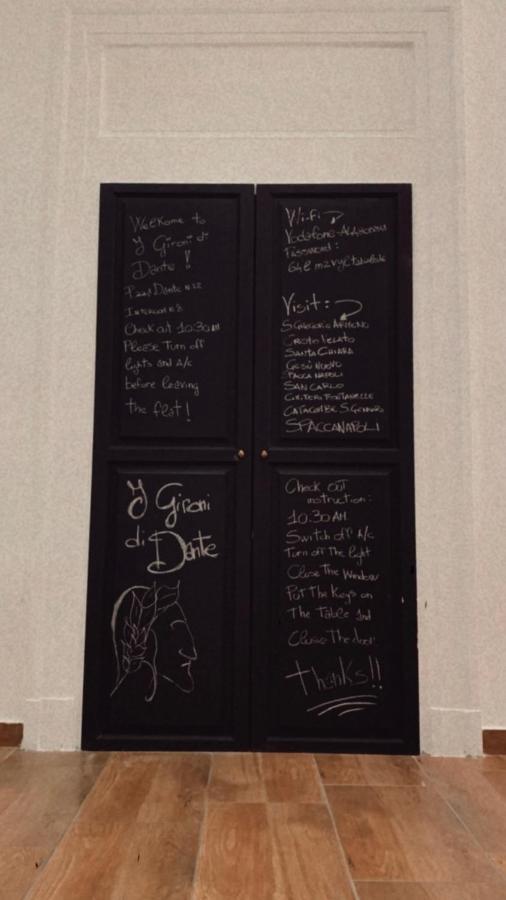 Welcome to
I Gironi di
Dante!
Piazza Dante N 22
Interno N 8
Check out 10:30 AM
Please Turn off
lights and A/c
before leaving
the flat!
I Gironi
di Dante
Wi-fi
Password:
Visit:
S. Gregorio Armeno
Cristo Velato
Santa Chiara
Gesù Nuovo
NAPOLI
San Carlo
Fontanelle
Catacombe S. Gennaro
SPACCANAPOLI
Check out
instruction:
10.30 AM
Switch off A/c
Turn off The light
Close The Window
Put The Keys on
The Table And
Close The door
Thanks!!